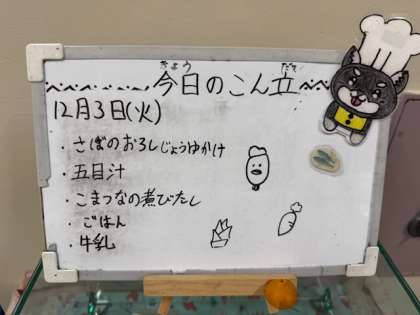 今日のこん立
きょう だて
12月3日(火)
・さばのおろしじょうゆかけ
・五目汁
・こまつなの煮びたし
・ごはん
・牛乳